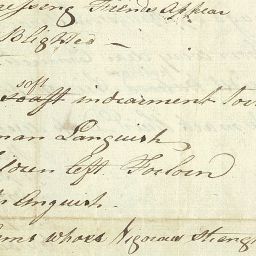 Friends Appear
Blighted —
soft
soaft indearment
man Languish
down left Forlorn
in Anguish.
whose Vigorous Streng